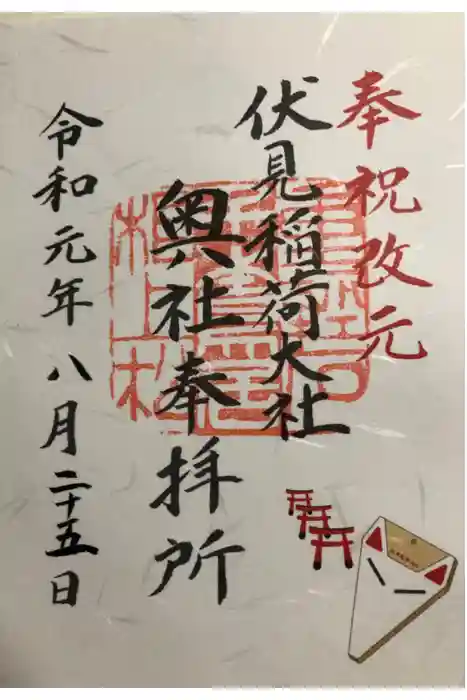 奉祝改元
伏見稲荷大社
奥社奉拝所
令和元年八月二十五日